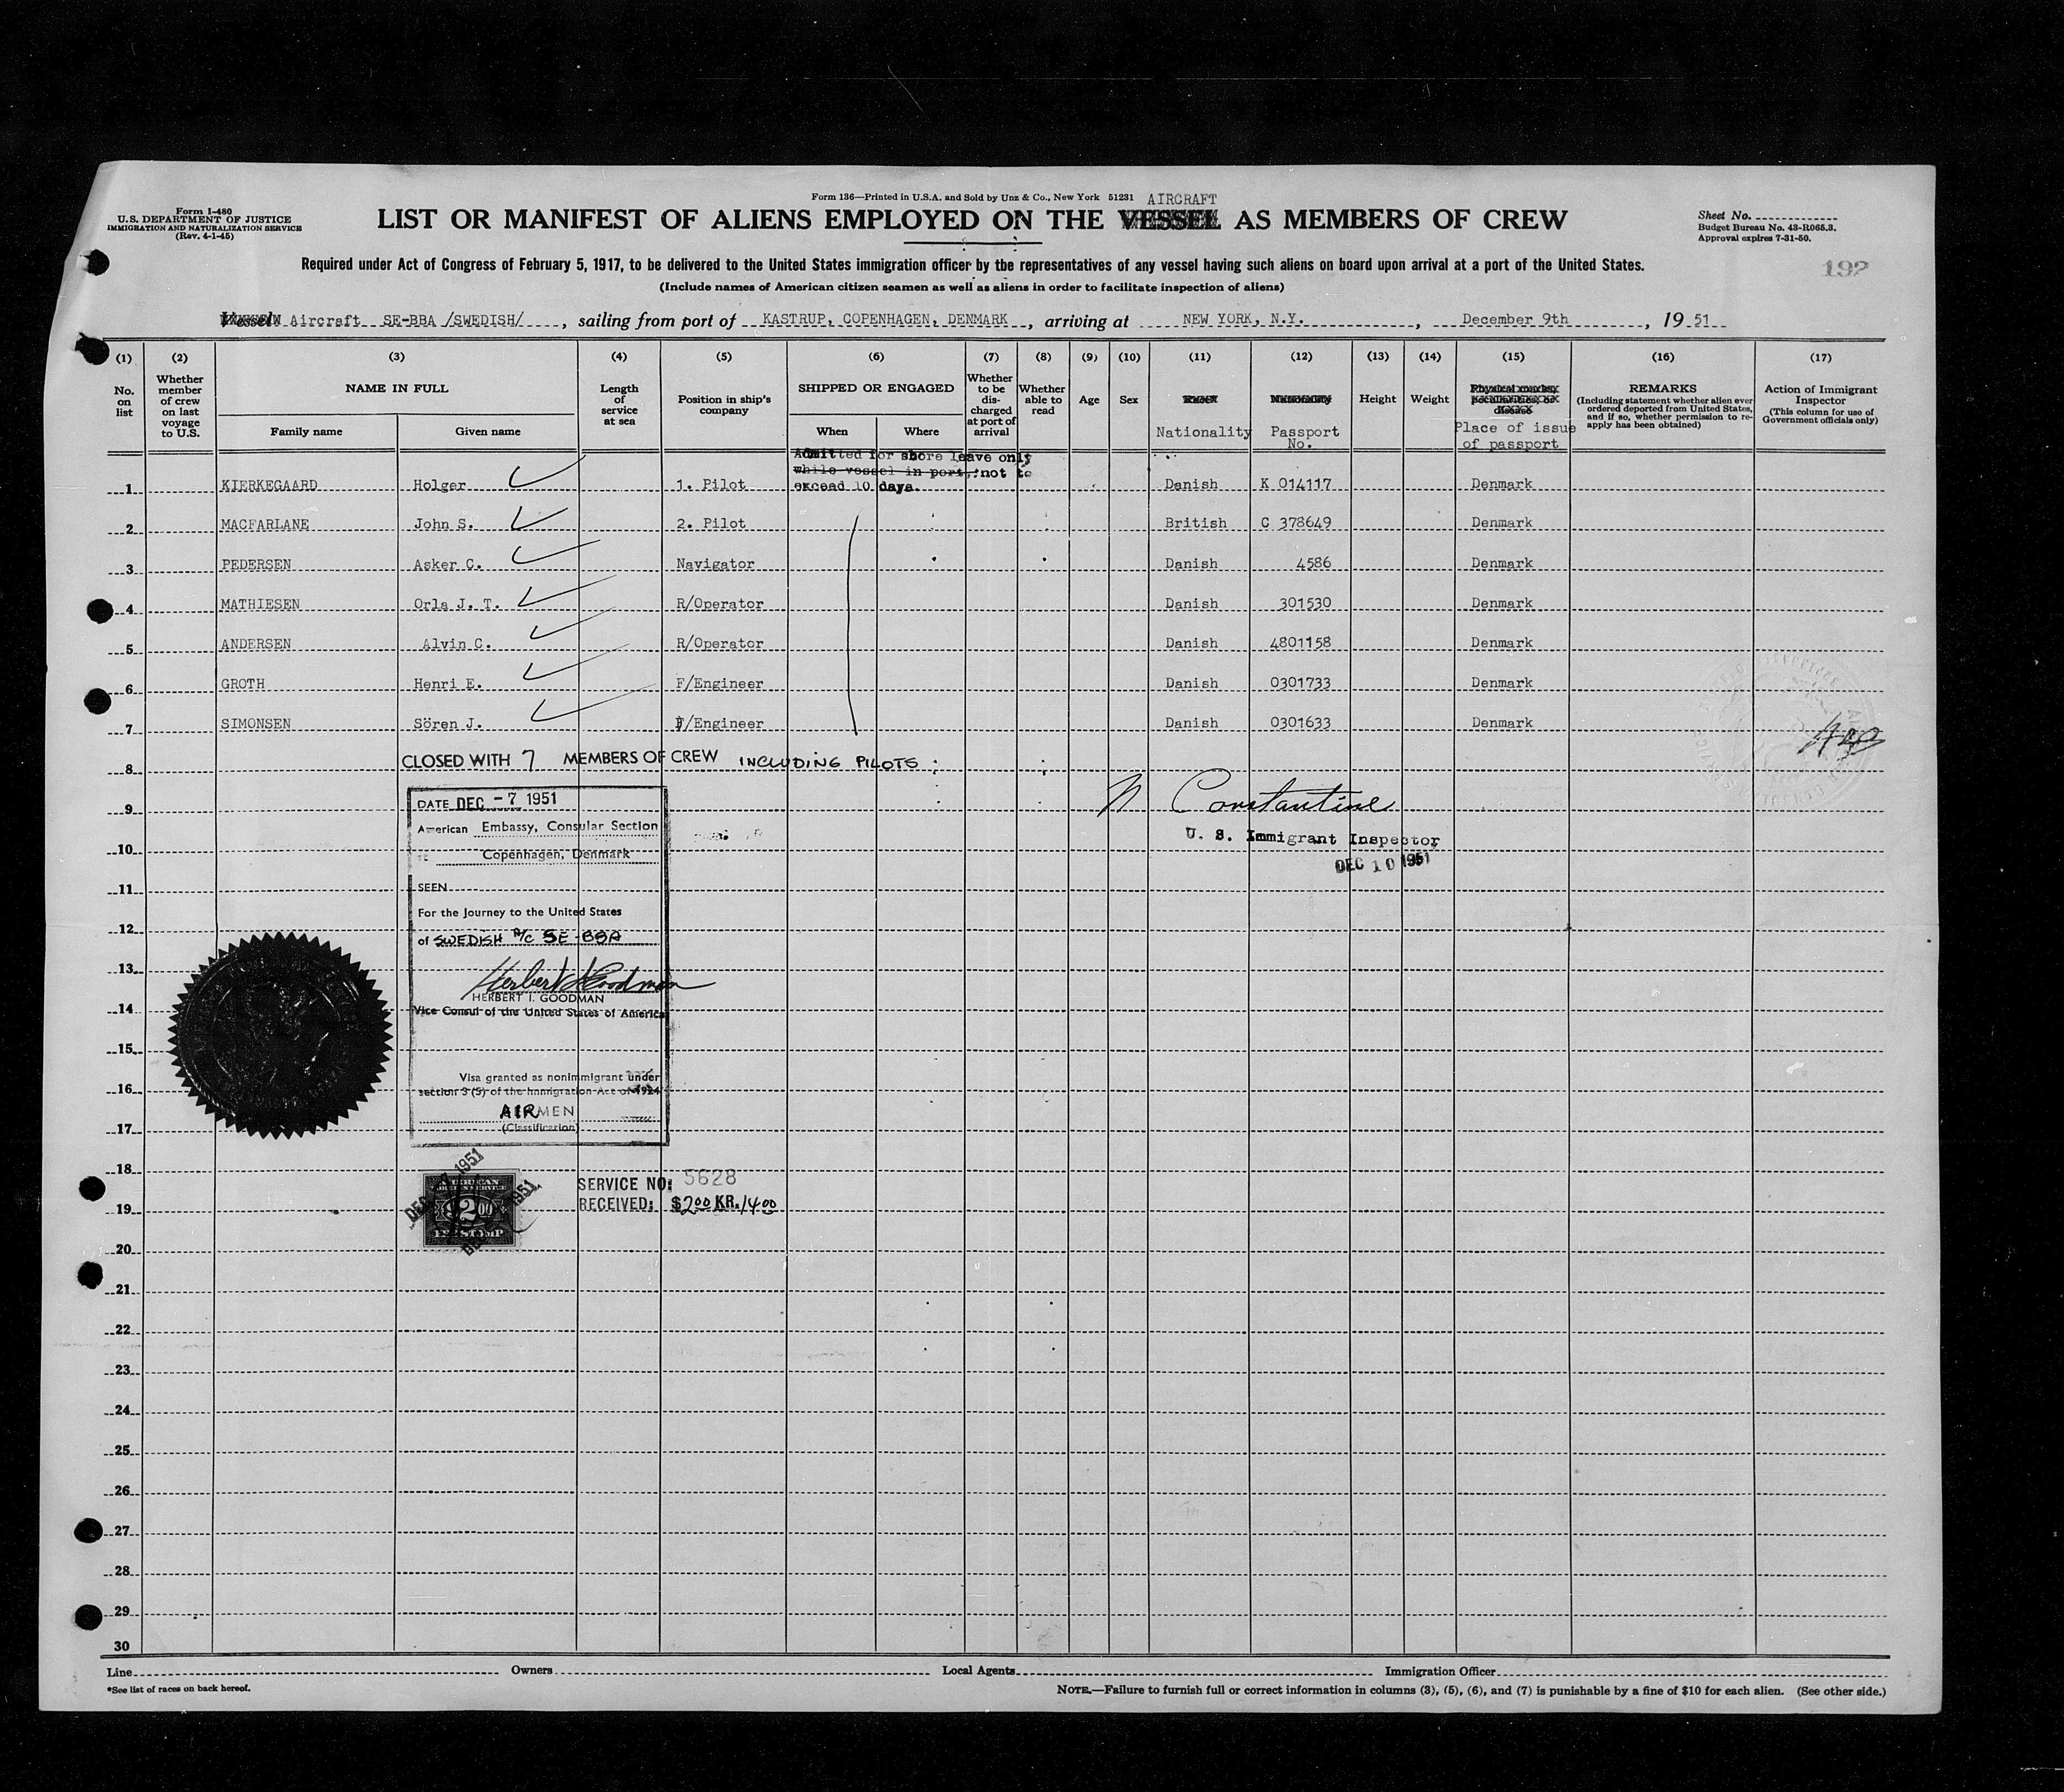 Form 136—Printed in U.S.A. and Sold by Unz & Co., New York 51231
AIRCRAFT
Form I-480
U.S. DEPARTMENT OF JUSTICE
IMMIGRATION AND NATURALIZATION SERVICE
(Rev. 4-1-45)
LIST OR MANIFEST OF ALIENS EMPLOYED ON THE VESSEL AS MEMBERS OF CREW
Sheet No.
Budget Bureau No. 43-R065.3.
Approval expires 7-31-50.
192
Required under Act of Congress of February 5, 1917, to be delivered to the United States immigration officer by the representatives of any vessel having such aliens on board upon arrival at a port of the United States.
(Include names of American citizen seamen as well as aliens in order to facilitate inspection of aliens)
Vessel Aircraft SE-BBA /SWEDISH/, sailing from port of KASTRUP, COPENHAGEN, DENMARK, arriving at NEW YORK, N.Y., December 9th, 19 51
(1) (2) (3) (4) (5) (6) (7) (8) (9) (10) (11) (12) (13) (14) (15) (16) (17)
No. on list
Whether member of crew on last voyage to U.S.
NAME IN FULL
Family name
Given name
Length of service at sea
Position in ship's company
SHIPPED OR ENGAGED
When
Where
Whether to be discharged at port of arrival
Whether able to read
Age
Sex
Nationality
Passport No.
Height
Weight
Physical marks, peculiarities, or disease
Place of issue of passport
REMARKS
(Including statement whether alien ever ordered deported from United States, and if so, whether permission to reapply has been obtained)
Action of Immigrant Inspector
(This column for use of Government officials only)
Admitted for shore leave only
while vessel in port, not to
exceed 10 days.
1 KIERKEGAARD Holger 1. Pilot Danish K 014117 Denmark
2 MACFARLANE John S. 2. Pilot British C 378649 Denmark
3 PEDERSEN Asker C. Navigator Danish 4586 Denmark
4 MATHIESEN Orla J. T. R/Operator Danish 301530 Denmark
5 ANDERSEN Alvin C. R/Operator Danish 4801158 Denmark
6 GROTH Henri E. F/Engineer Danish 0301733 Denmark
7 SIMONSEN Sören J. F/Engineer Danish 0301633 Denmark
8 CLOSED WITH 7 MEMBERS OF CREW INCLUDING PILOTS
9
DATE DEC -7 1951
N Constantine
American Embassy, Consular Section
U. S. Immigrant Inspector
10
Copenhagen, Denmark
DEC 10 1951
11
SEEN
12
For the Journey to the United States
of SWEDISH A/C SE-BBA
13
Herbert I Goodman
HERBERT I. GOODMAN
14
Vice Consul of the United States of America
15
Visa granted as nonimmigrant under
16
section 3 (5) of the Immigration Act of 1924
AIRMEN
17
(Classification)
18
DEC 7 1951
SERVICE NO: 5628
19
RECEIVED: $2.00 KR. 14.00
AMERICAN
FOREIGN SERVICE
$2.00
FEE STAMP
20
21
22
23
24
25
26
27
28
29
30
Line
Owners
Local Agents
Immigration Officer
*See list of races on back hereof.
NOTE.—Failure to furnish full or correct information in columns (3), (5), (6), and (7) is punishable by a fine of $10 for each alien. (See other side.)